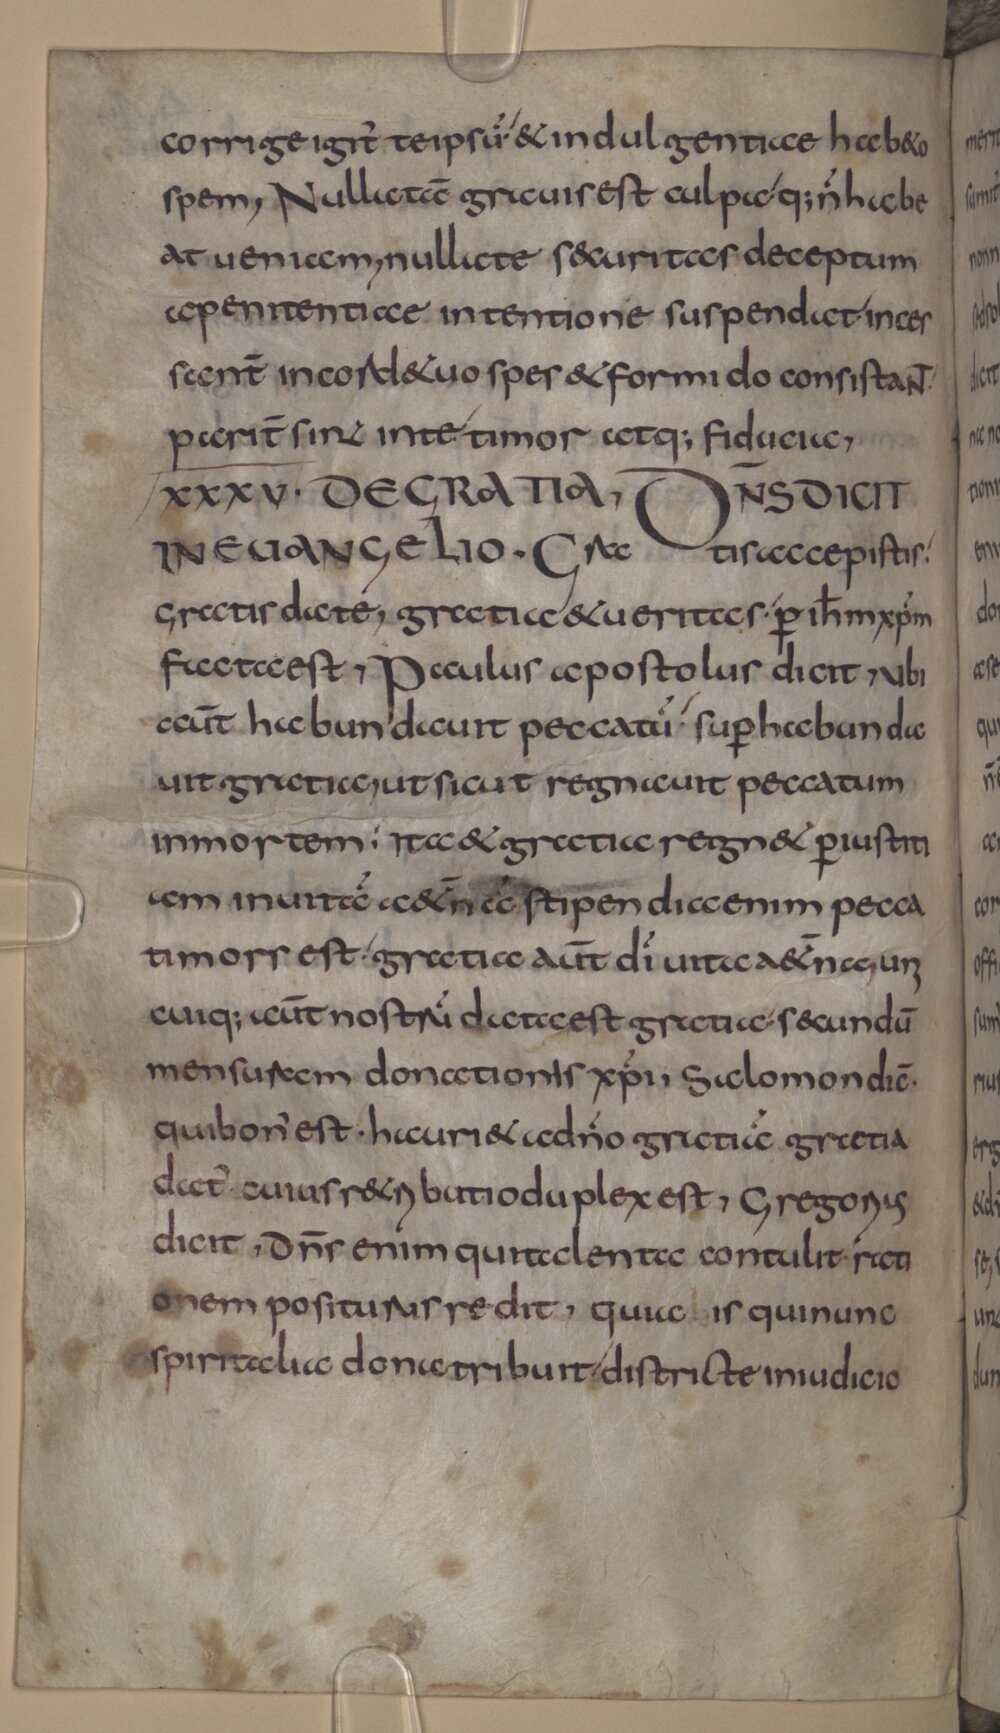 corrige igit̄ te ipsū & indulgentiae hab&o
spem, Nulla tā grauis est culpa q; n̄ habe
at ueniam, nulla te securitas deceptum
a penitentiae intentione suspendat inces
sant̄ in corde & uo spes & formido consistaNT
parit̄ sint in te timor atq; fiducia,
XXXV. DE GRATIA, DN̄S DICIT
IN EUANGELIO. Gratis accepistis.
gratis date, gratia & ueritas p̄ ih̄m xp̄m
facta est, Paulus apostolus dicit, ubi
aūt habundauit peccatū. sup̄habunda
uit gratia, ut sicut regnauit peccatum
in mortem. ita & gratia regn& p̄ iustiti
am in uitā a&n̄ā stipendia enim pecca
ti mors est. gratia aūt dī uita a&n̄a, un
cuiq; aūt nostrū data est gratia secundū
mensuram donationis xp̄i, Salomon dic̄.
qui bon' est. hauri& a dn̄o gratiā gratia
dat' cuius r&ributio duplex est, Gregorius
dicit, Dn̄s enim qui talenta contulit rati
onem positurus redit, quia is qui nunc
spiritalia dona tribuit districte in iudicio